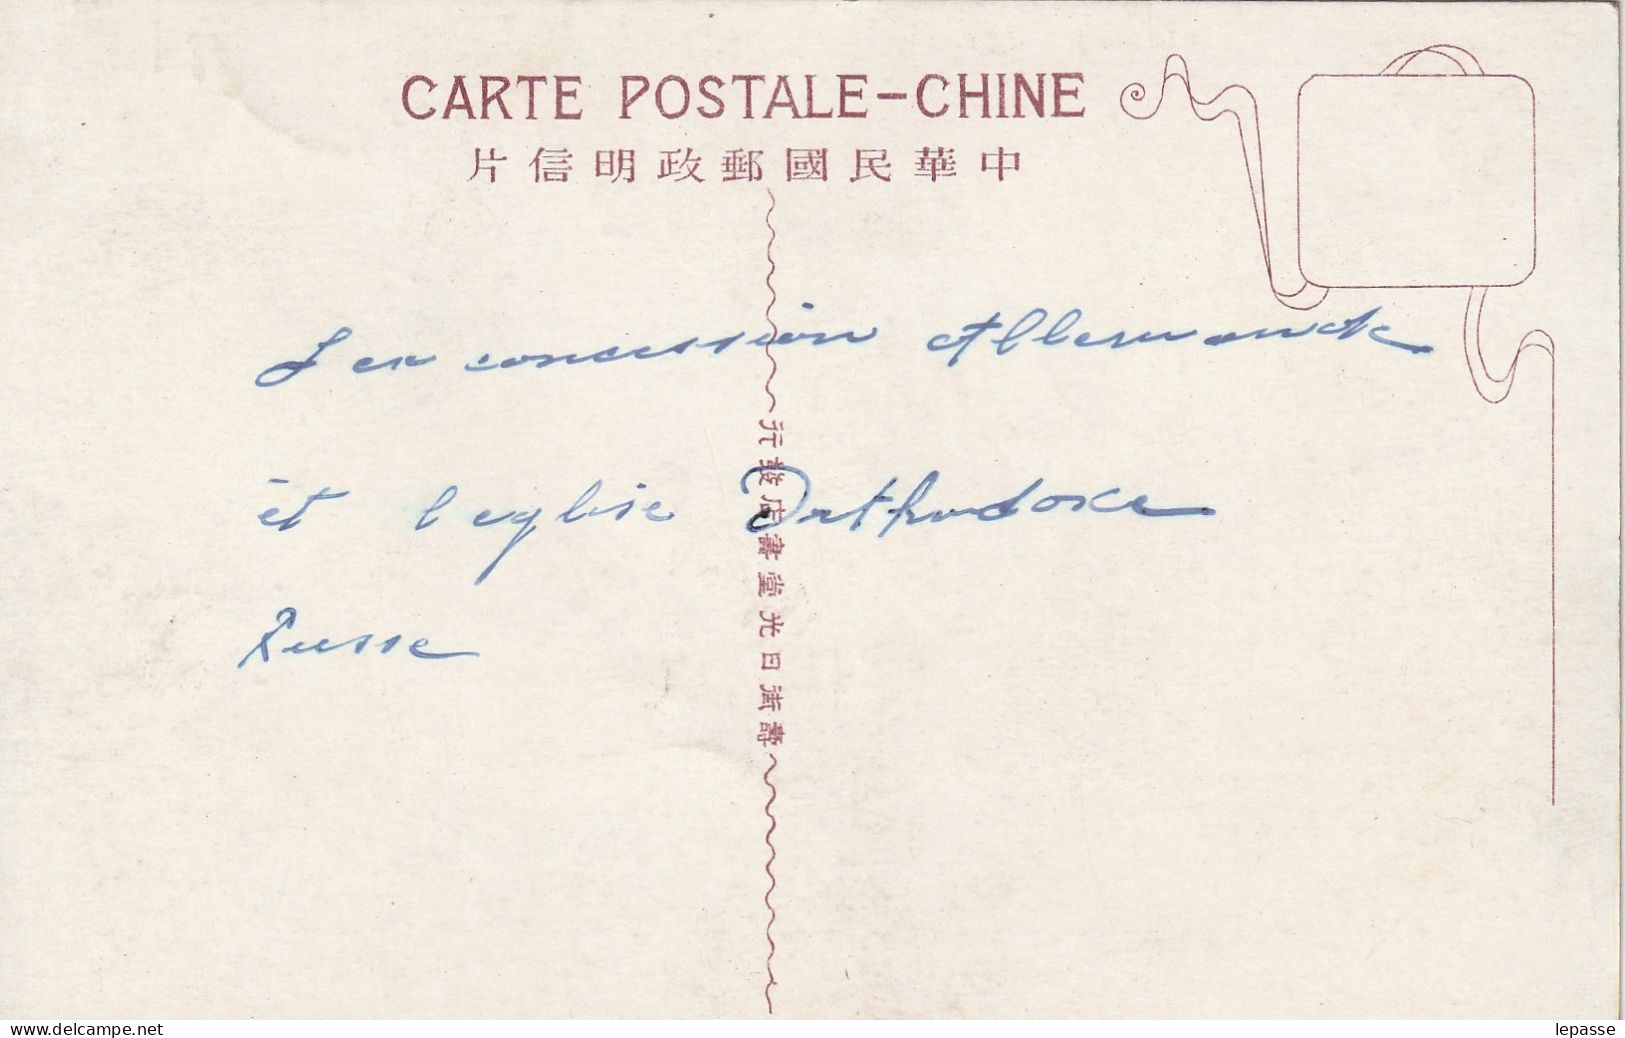 CARTE POSTALE-CHINE
片信明政郵國民華中
La concession Allemande
et l'eglise Orthodoxe
Russe
行發店書堂光日街壽
www.delcampe.net
lepasse